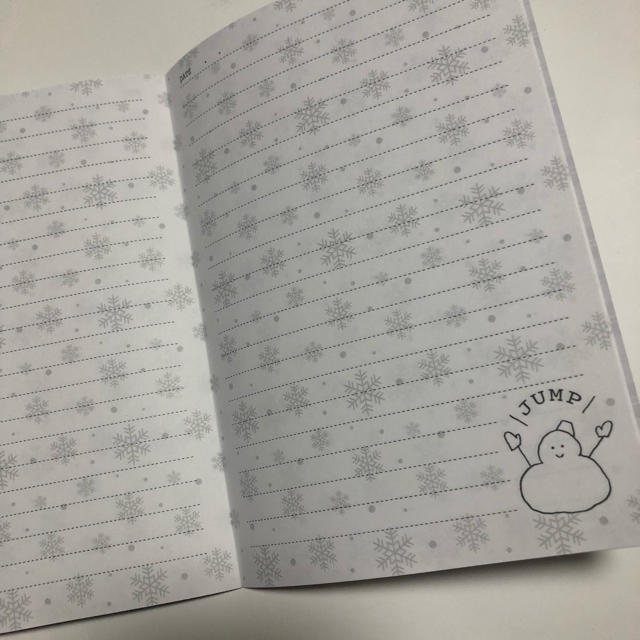 DATE
\JUMP/